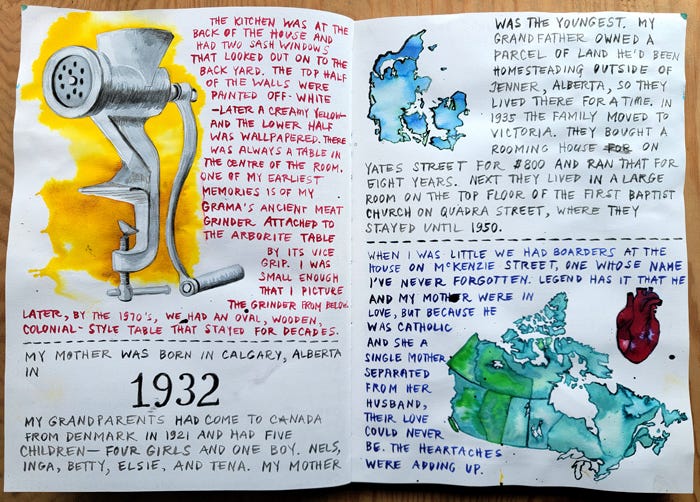 THE KITCHEN WAS AT THE
BACK OF THE HOUSE AND
HAD TWO SASH WINDOWS
THAT LOOKED OUT ON TO THE
BACK YARD. THE TOP HALF
OF THE WALLS WERE
PAINTED OFF-WHITE
-LATER A CREAMY YELLOW-
AND THE LOWER HALF
WAS WALLPAPERED. THERE
WAS ALWAYS A TABLE IN
THE CENTRE OF THE ROOM.
ONE OF MY EARLIEST
MEMORIES IS OF MY
GRAMA'S ANCIENT MEAT
GRINDER ATTACHED TO
THE ARBORITE TABLE
BY ITS VICE
GRIP. I WAS
SMALL ENOUGH
THAT I PICTURE
THE GRINDER FROM BELOW.
LATER, BY THE 1970'S, WE HAD AN OVAL, WOODEN,
COLONIAL-STYLE TABLE THAT STAYED FOR DECADES.
MY MOTHER WAS BORN IN CALGARY, ALBERTA
IN
1932
MY GRANDPARENTS HAD COME TO CANADA
FROM DENMARK IN 1921 AND HAD FIVE
CHILDREN— FOUR GIRLS AND ONE BOY. NELS,
INGA, BETTY, ELSIE, AND TENA. MY MOTHER
WAS THE YOUNGEST. MY
GRANDFATHER OWNED A
PARCEL OF LAND HE'D BEEN
HOMESTEADING OUTSIDE OF
JENNER, ALBERTA, SO THEY
LIVED THERE FOR A TIME. IN
1935 THE FAMILY MOVED TO
VICTORIA. THEY BOUGHT A
ROOMING HOUSE FOR ON
YATES STREET FOR $800 AND RAN THAT FOR
EIGHT YEARS. NEXT THEY LIVED IN A LARGE
ROOM ON THE TOP FLOOR OF THE FIRST BAPTIST
CHURCH ON QUADRA STREET, WHERE THEY
STAYED UNTIL 1950.
WHEN I WAS LITTLE WE HAD BOARDERS AT THE
HOUSE ON McKENZIE STREET, ONE WHOSE NAME
I'VE NEVER FORGOTTEN. LEGEND HAS IT THAT HE
AND MY MOTHER WERE IN
LOVE, BUT BECAUSE HE
WAS CATHOLIC
AND SHE A
SINGLE MOTHER,
SEPARATED
FROM HER
HUSBAND,
THEIR LOVE
COULD NEVER
BE. THE HEARTACHES
WERE ADDING UP.